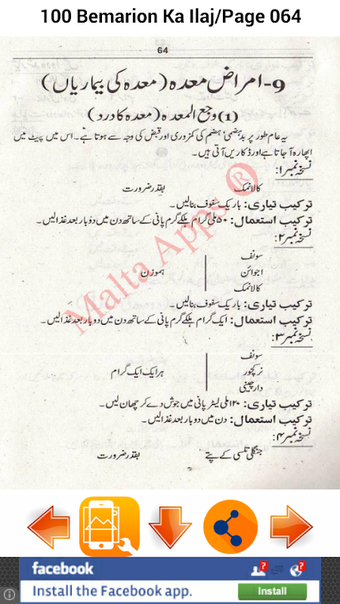 100 Bemarion Ka Ilaj/Page 064
64
9- امراض معدہ (معدہ کی بیماریاں)
(1) وجع المعدہ (معدہ کا درد)
یہ عام طور پر بدہضمی، ہضم کی کمزوری اور قبض کی وجہ سے ہوتا ہے۔ اس میں پیٹ میں
اپھارہ آ جاتا ہے اور ڈکاریں آتی ہیں۔
نسخہ نمبر ۱:
کالا نمک بقدر ضرورت
ترکیب تیاری: باریک سفوف بنالیں۔
ترکیب استعمال: ۵۰ ملی گرام ہلکے گرم پانی کے ساتھ دن میں دو بار بعد غذا لیں۔
نسخہ نمبر ۲:
سونف
اجوائن ہموزن
کالا نمک
ترکیب تیاری: باریک سفوف بنالیں۔
ترکیب استعمال: ایک گرام ہلکے گرم پانی کے ساتھ دن میں دو بار بعد غذا لیں۔
نسخہ نمبر ۳:
سونف
نرکچور ہر ایک ایک گرام
دار چینی
ترکیب تیاری: ۱۲۰ ملی لیٹر پانی میں جوش دے کر چھان لیں۔
ترکیب استعمال: دن میں دو بار بعد غذا لیں۔
نسخہ نمبر ۴:
جنگلی تلسی کے پتے بقدر ضرورت
Malta Apps ®
facebook
Install the Facebook app.
Install